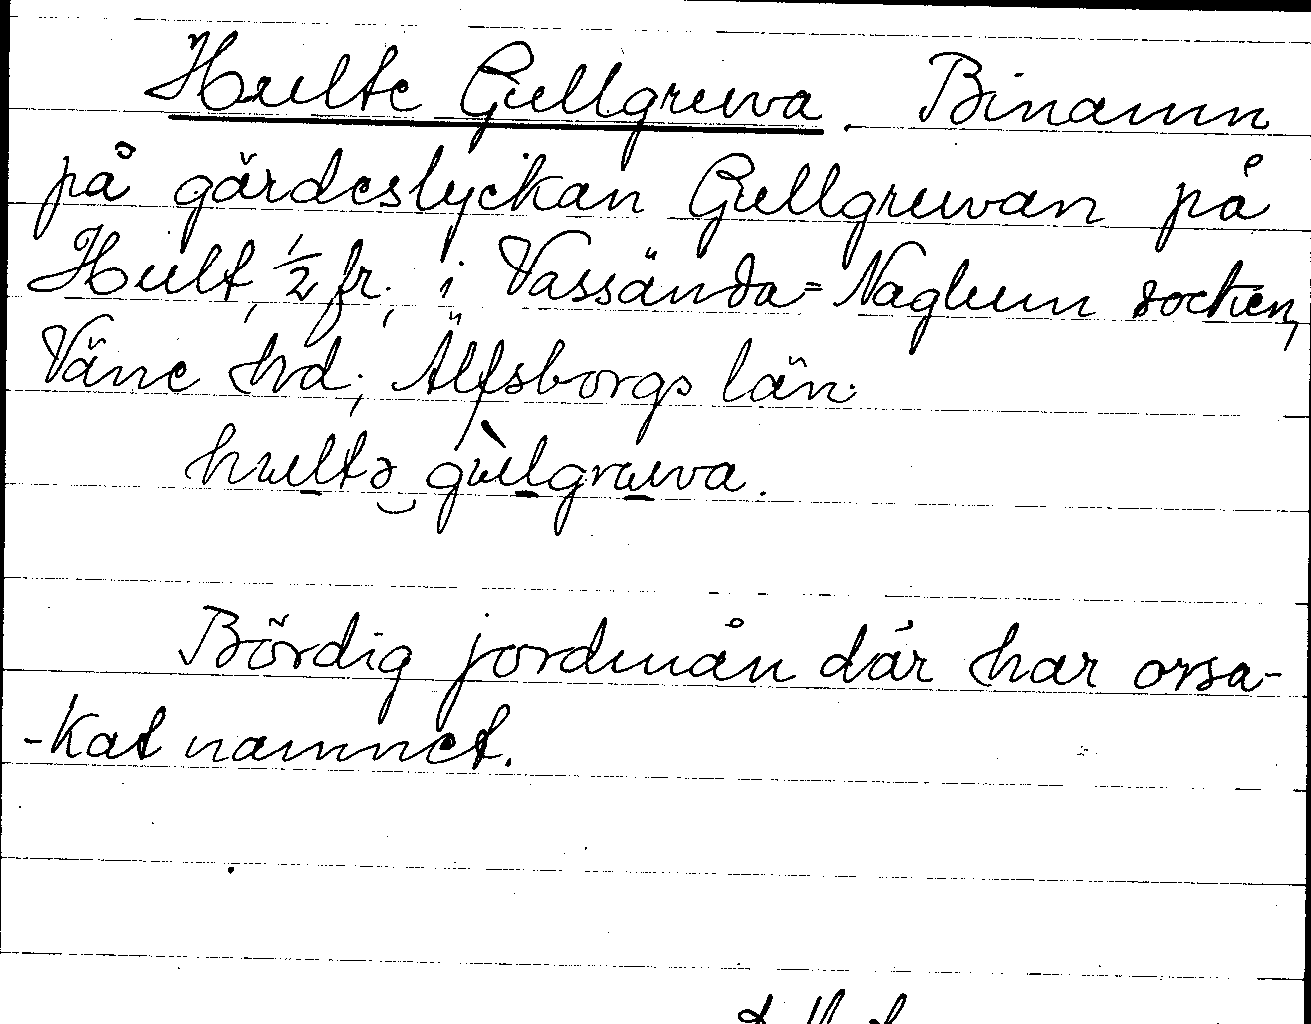 Hulte Gullgruva. Binamn
på gärdeslyckan Gullgruvan på
Hult, 1/2 fr., i Vassända=Naglum socken,
Väne hd, Älfsborgs län.
hultə gùlgruva.
Bördig jordmån där har orsa-
-kat namnet.